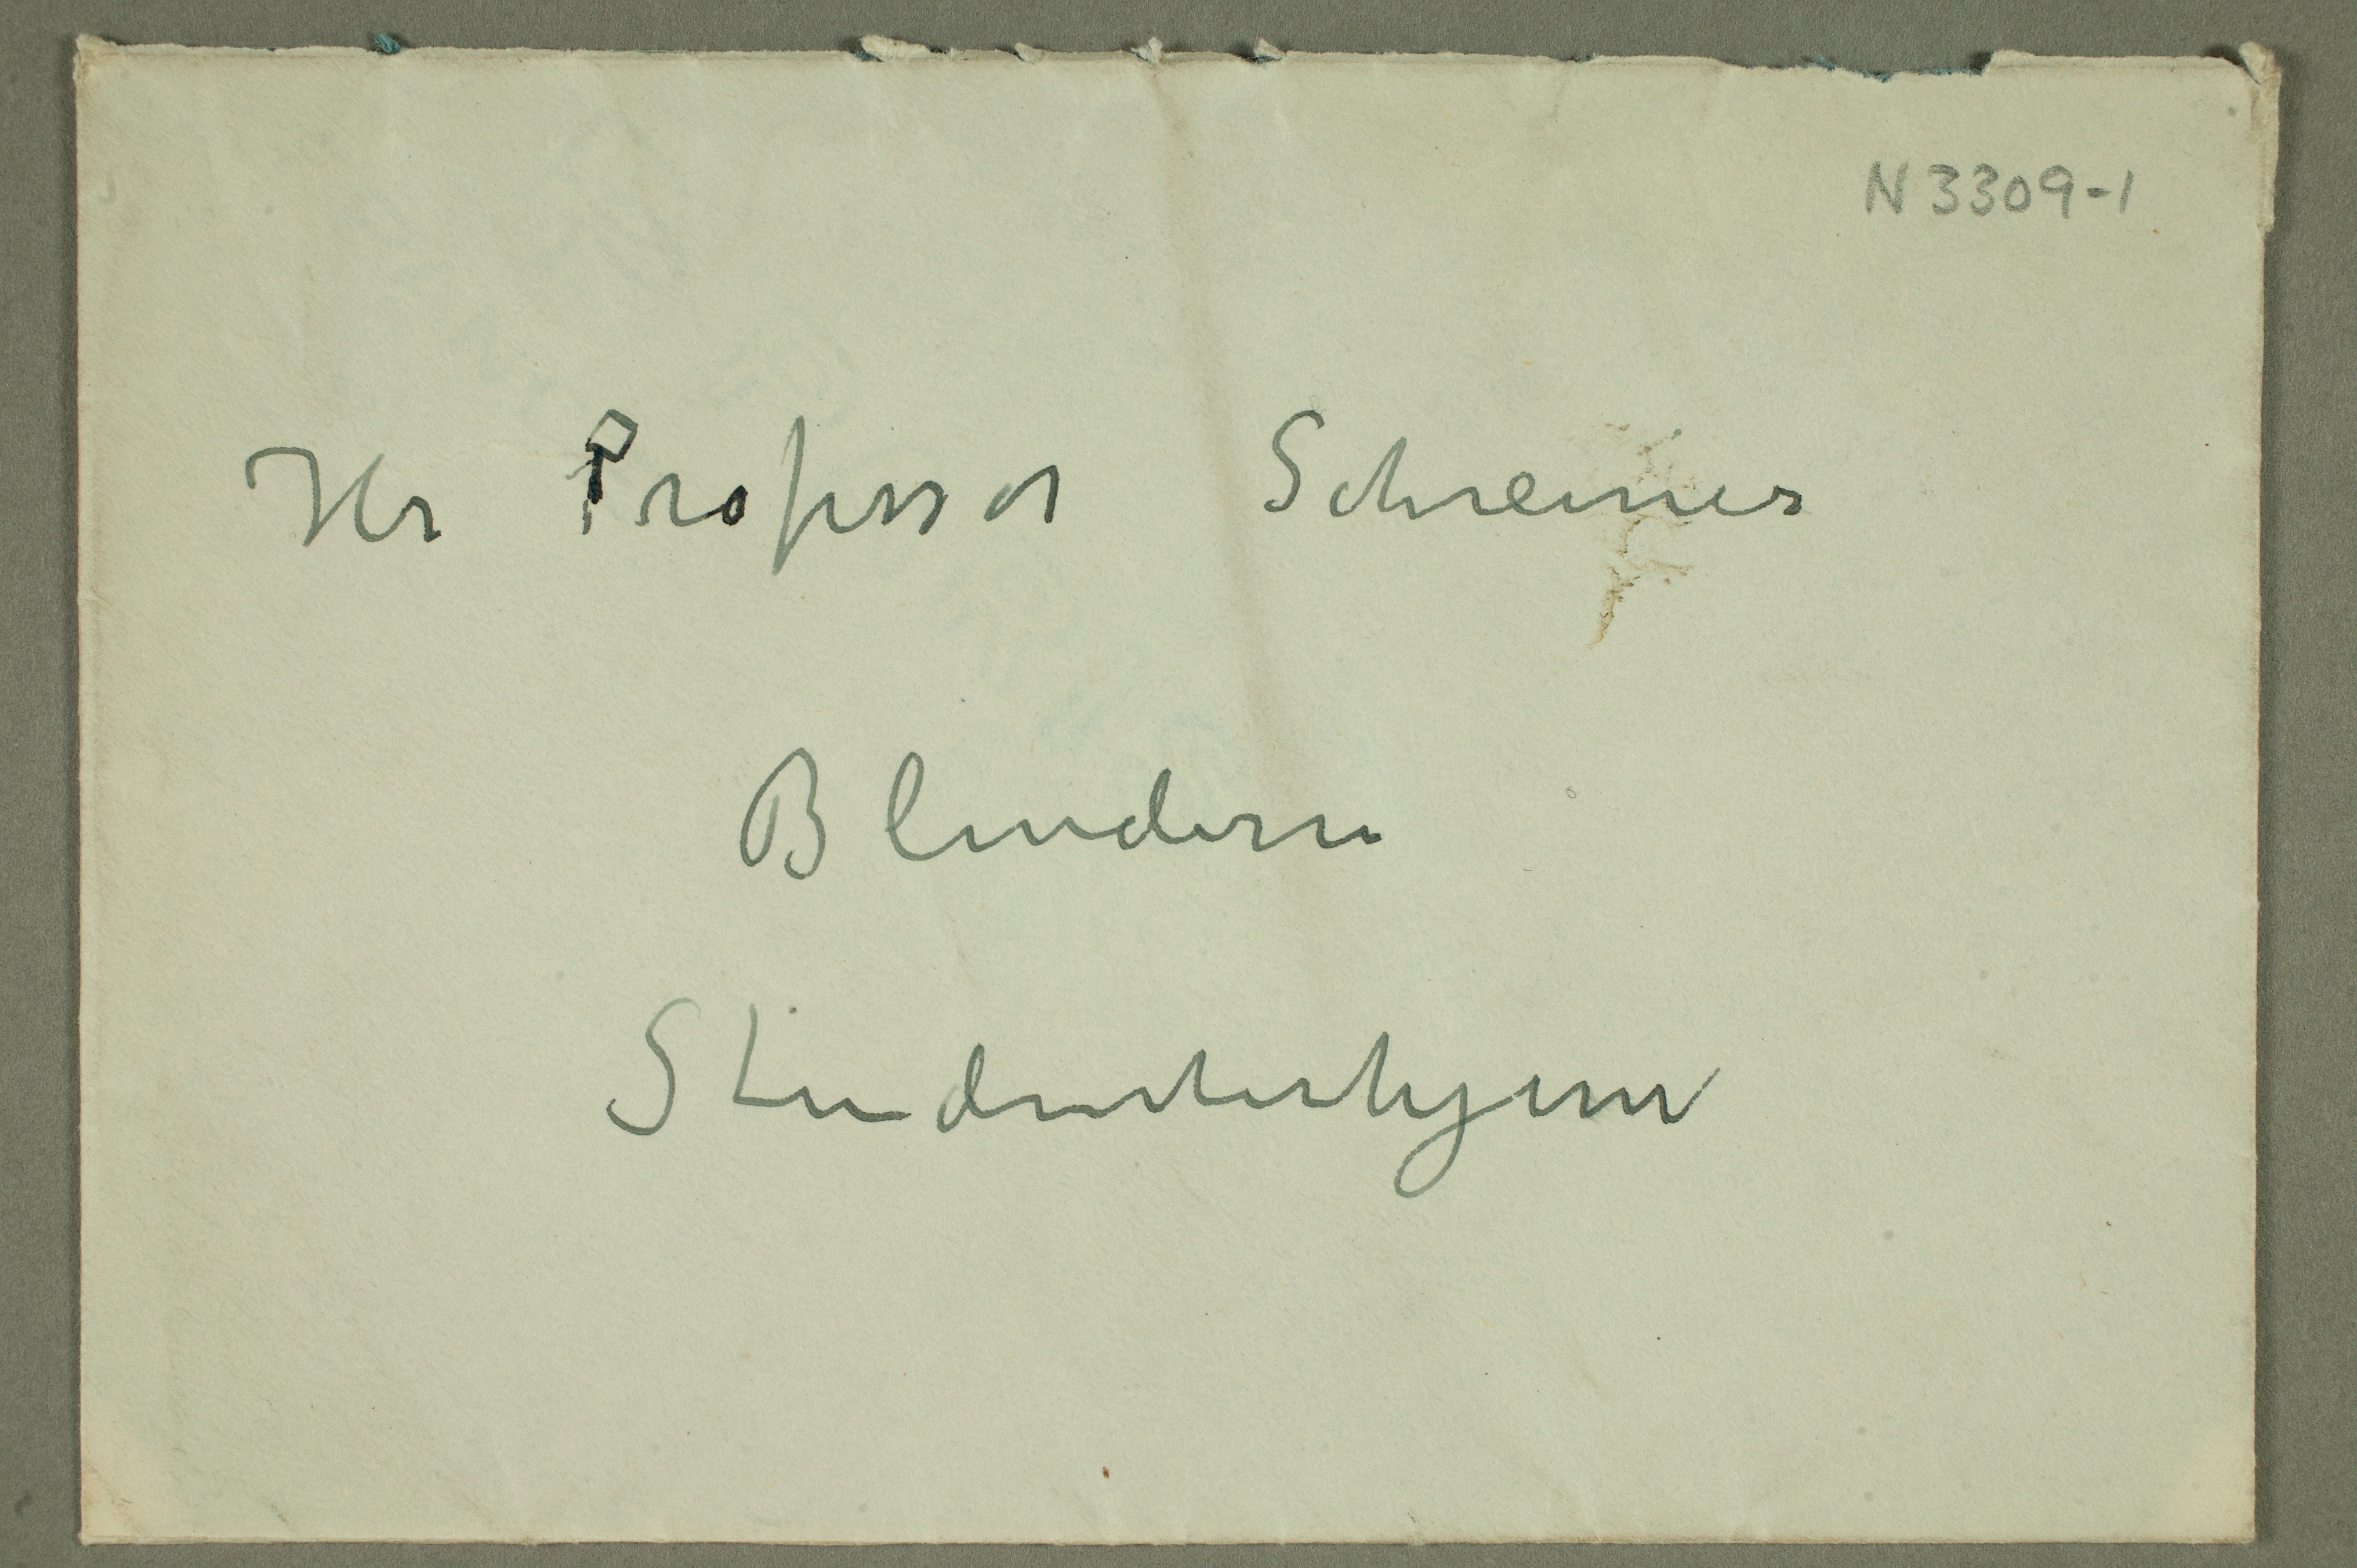 N 3309-1
Hr Professor Schreiner
Blindern
Studenterhjem